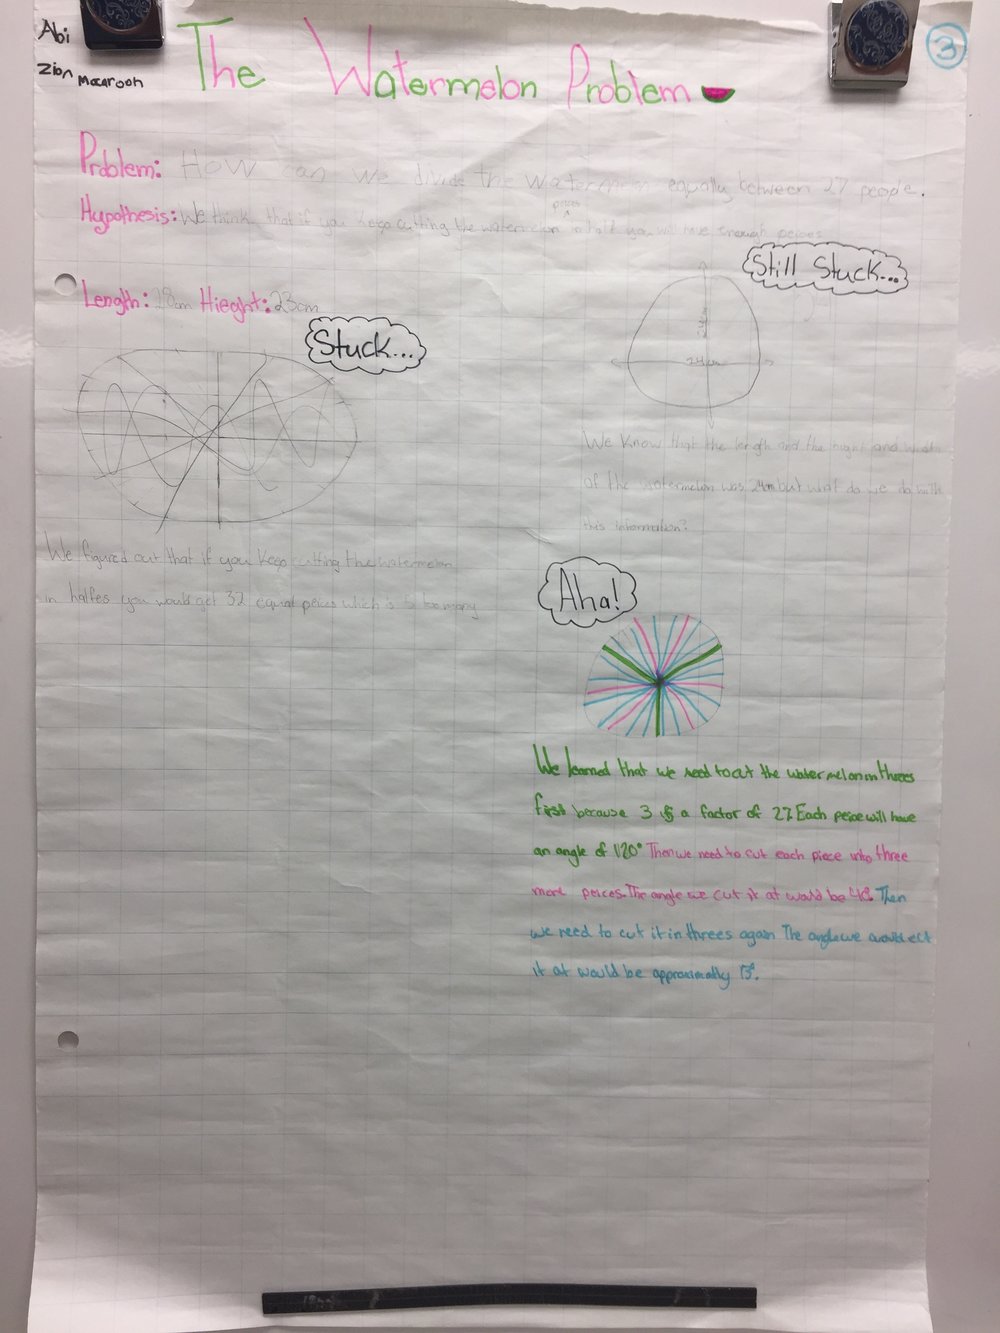 Abi
Zion Macarooh
The Watermelon Problem
3
Problem: How can we divide the watermelon equally between 27 people.
peices
Hypothesis: We think that if you keep cutting the watermelon in half you will have enough peices
Still Stuck...
Length: 28cm Hieght: 23cm
Stuck...
24cm
We know that the length and the hight and width
of the watermelon was 24m but what do we do with
this information?
We figured out that if you keep cutting the watermelon
in halfes you would get 32 equal peices which is 5 too many
Aha!
We learned that we need to cut the watermelon in threes
first because 3 is a factor of 27. Each peice will have
an angle of 120° Then we need to cut each piece into three
more peices. The angle we cut it at would be 40°. Then
we need to cut it in threes again The angle we would cut
it at would be approximally 13°.